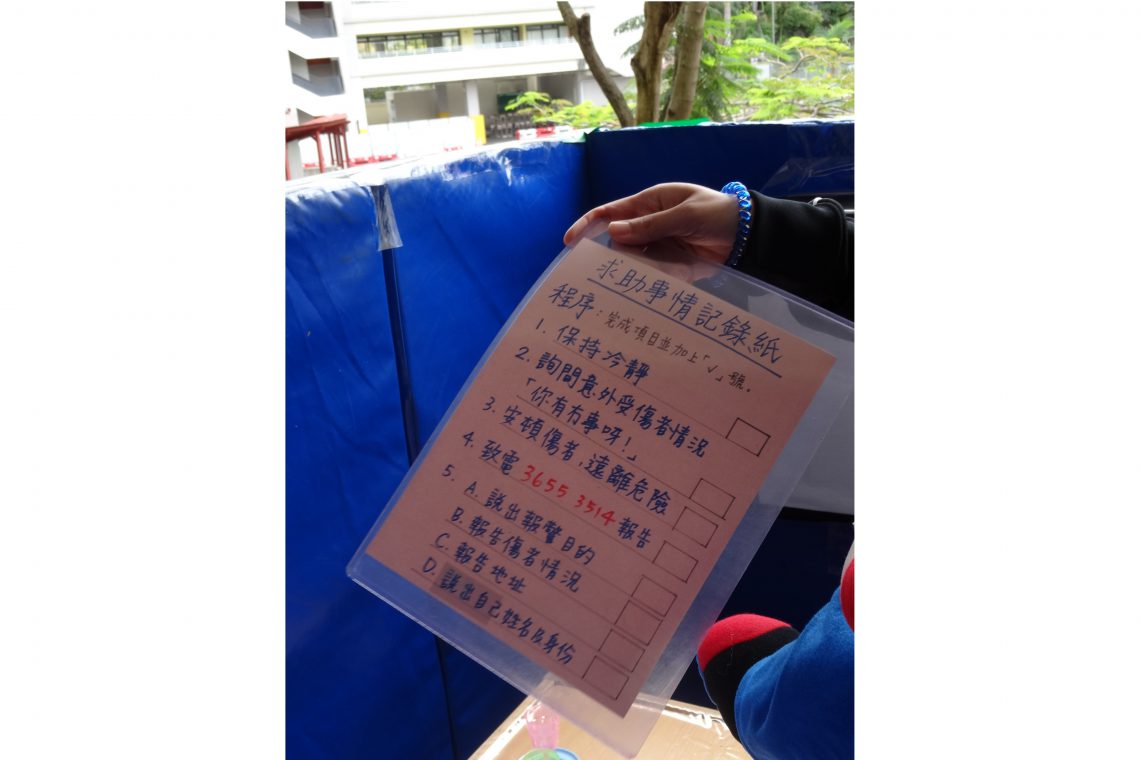 求助事情記錄紙
程序：完成項目並加上「✓」號。
1. 保持冷靜
2. 詢問意外受傷者情況
「你有冇事呀！」
3. 安頓傷者，遠離危險
4. 致電 3655 3514 報告
5. A. 說出報警目的
B. 報告傷者情況
C. 報告地址
D. 說出自己姓名及身份